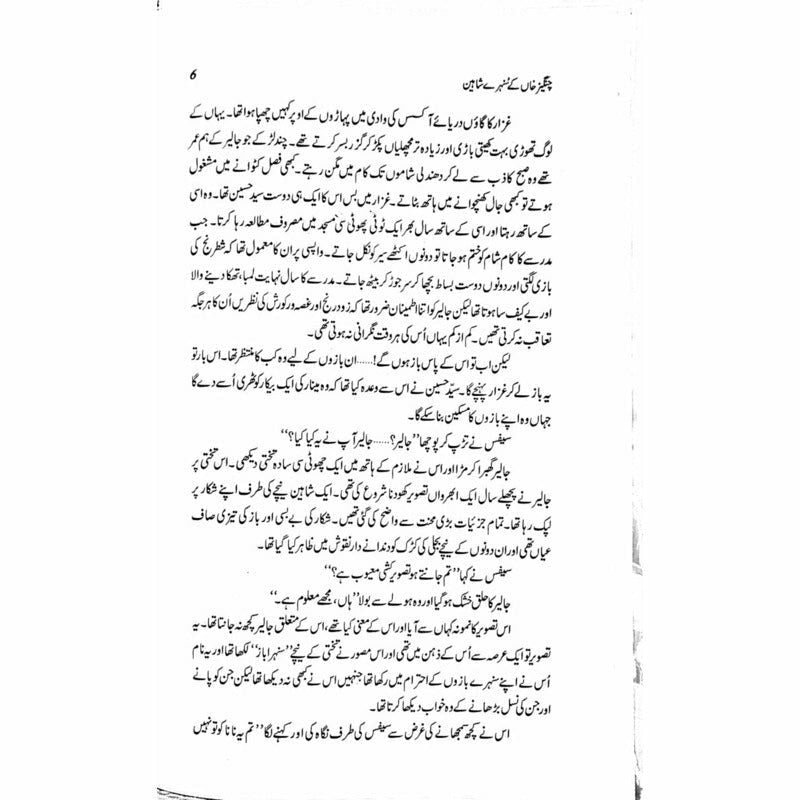 چنگیز خاں کے سُنہرے شاہین
6
غزار کا گاؤں دریائے آکسس کی وادی میں پہاڑوں کے اوپر کہیں چھپا ہوا تھا۔ یہاں کے
لوگ تھوڑی بہت کھیتی باڑی اور زیادہ تر مچھلیاں پکڑ کر گزر بسر کرتے تھے۔ چند لڑکے جو جالیر کے ہم عمر
تھے وہ صبح کاذب سے لے کر دھندلی شاموں تک کام میں مگن رہتے۔ کبھی فصل کٹوانے میں مشغول
ہوتے تو کبھی جال کھنچوانے میں ہاتھ بٹاتے۔ غزار میں بس اس کا ایک ہی دوست سید حسین تھا۔ وہ اسی
کے ساتھ رہتا اور اسی کے ساتھ سال بھر ایک ٹوٹی پھوٹی سی مسجد میں مصروف مطالعہ رہا کرتا۔ جب
مدرسے کا کام شام کو ختم ہو جاتا تو دونوں اکٹھے سیر کو نکل جاتے۔ واپسی پر ان کا معمول تھا کہ شطرنج کی
بازی لگتی اور دونوں دوست بساط بچھا کر سر جوڑ کر بیٹھ جاتے۔ مدرسے کا سال نہایت لمبا، تھکا دینے والا
اور بے کیف سا ہوتا تھا لیکن جالیر کو اتنا اطمینان ضرور تھا کہ زود رنج اور غصہ ور کورش کی نظریں اُن کا ہر جگہ
تعاقب نہ کرتی تھیں۔ کم از کم یہاں اُس کی ہر وقت نگرانی نہ ہوتی تھی۔
لیکن اب تو اس کے پاس باز ہوں گے!......ان بازوں کے لیے وہ کب کا منتظر تھا۔ اس بار تو
یہ باز لے کر غزار پہنچے گا۔ سیّد حسین نے اس سے وعدہ کیا تھا کہ وہ مینار کی ایک بیکار کوٹھری اُسے دے گا
جہاں وہ اپنے بازوں کا مسکین بنا سکے گا۔
سیفس نے تڑپ کر پوچھا ”جالیر؟......جالیر آپ نے یہ کیا کیا؟“
جالیر گھبرا کر مڑا اور اس نے ملازم کے ہاتھ میں ایک چھوٹی سی سادہ تختی دیکھی۔ اس تختی پر
جالیر نے پچھلے سال ایک ابھرواں تصویر کھودنا شروع کی تھی۔ ایک شاہین نیچے کی طرف اپنے شکار پر
لپک رہا تھا۔ تمام جزئیات بڑی محنت سے واضح کی گئی تھیں۔ شکار کی بے بسی اور باز کی تیزی صاف
عیاں تھی اور ان دونوں کے نیچے بجلی کی کڑک کو دندانے دار نقوش میں ظاہر کیا گیا تھا۔
سیفس نے کہا ”تم جانتے ہو تصویر کشی معیوب ہے؟“
جالیر کا حلق خشک ہو گیا اور وہ ہولے سے بولا ”ہاں، مجھے معلوم ہے۔“
اس تصویر کا نمونہ کہاں سے آیا اور اس کے معنی کیا تھے، اس کے متعلق جالیر کچھ نہ جانتا تھا۔ یہ
تصویر تو ایک عرصہ سے اُس کے ذہن میں تھی اور اس مصور نے تختی کے نیچے ”سنہرا باز“ لکھا تھا اور یہ نام
اُس نے اپنے سنہرے بازوں کے احترام میں رکھا تھا جنہیں اس نے کبھی نہ دیکھا تھا لیکن جن کو پانے
اور جن کی نسل بڑھانے کے وہ خواب دیکھا کرتا تھا۔
اس نے کچھ سمجھانے کی غرض سے سیفس کی طرف نگاہ کی اور کہنے لگا ”تم یہ نانا کو تو نہیں